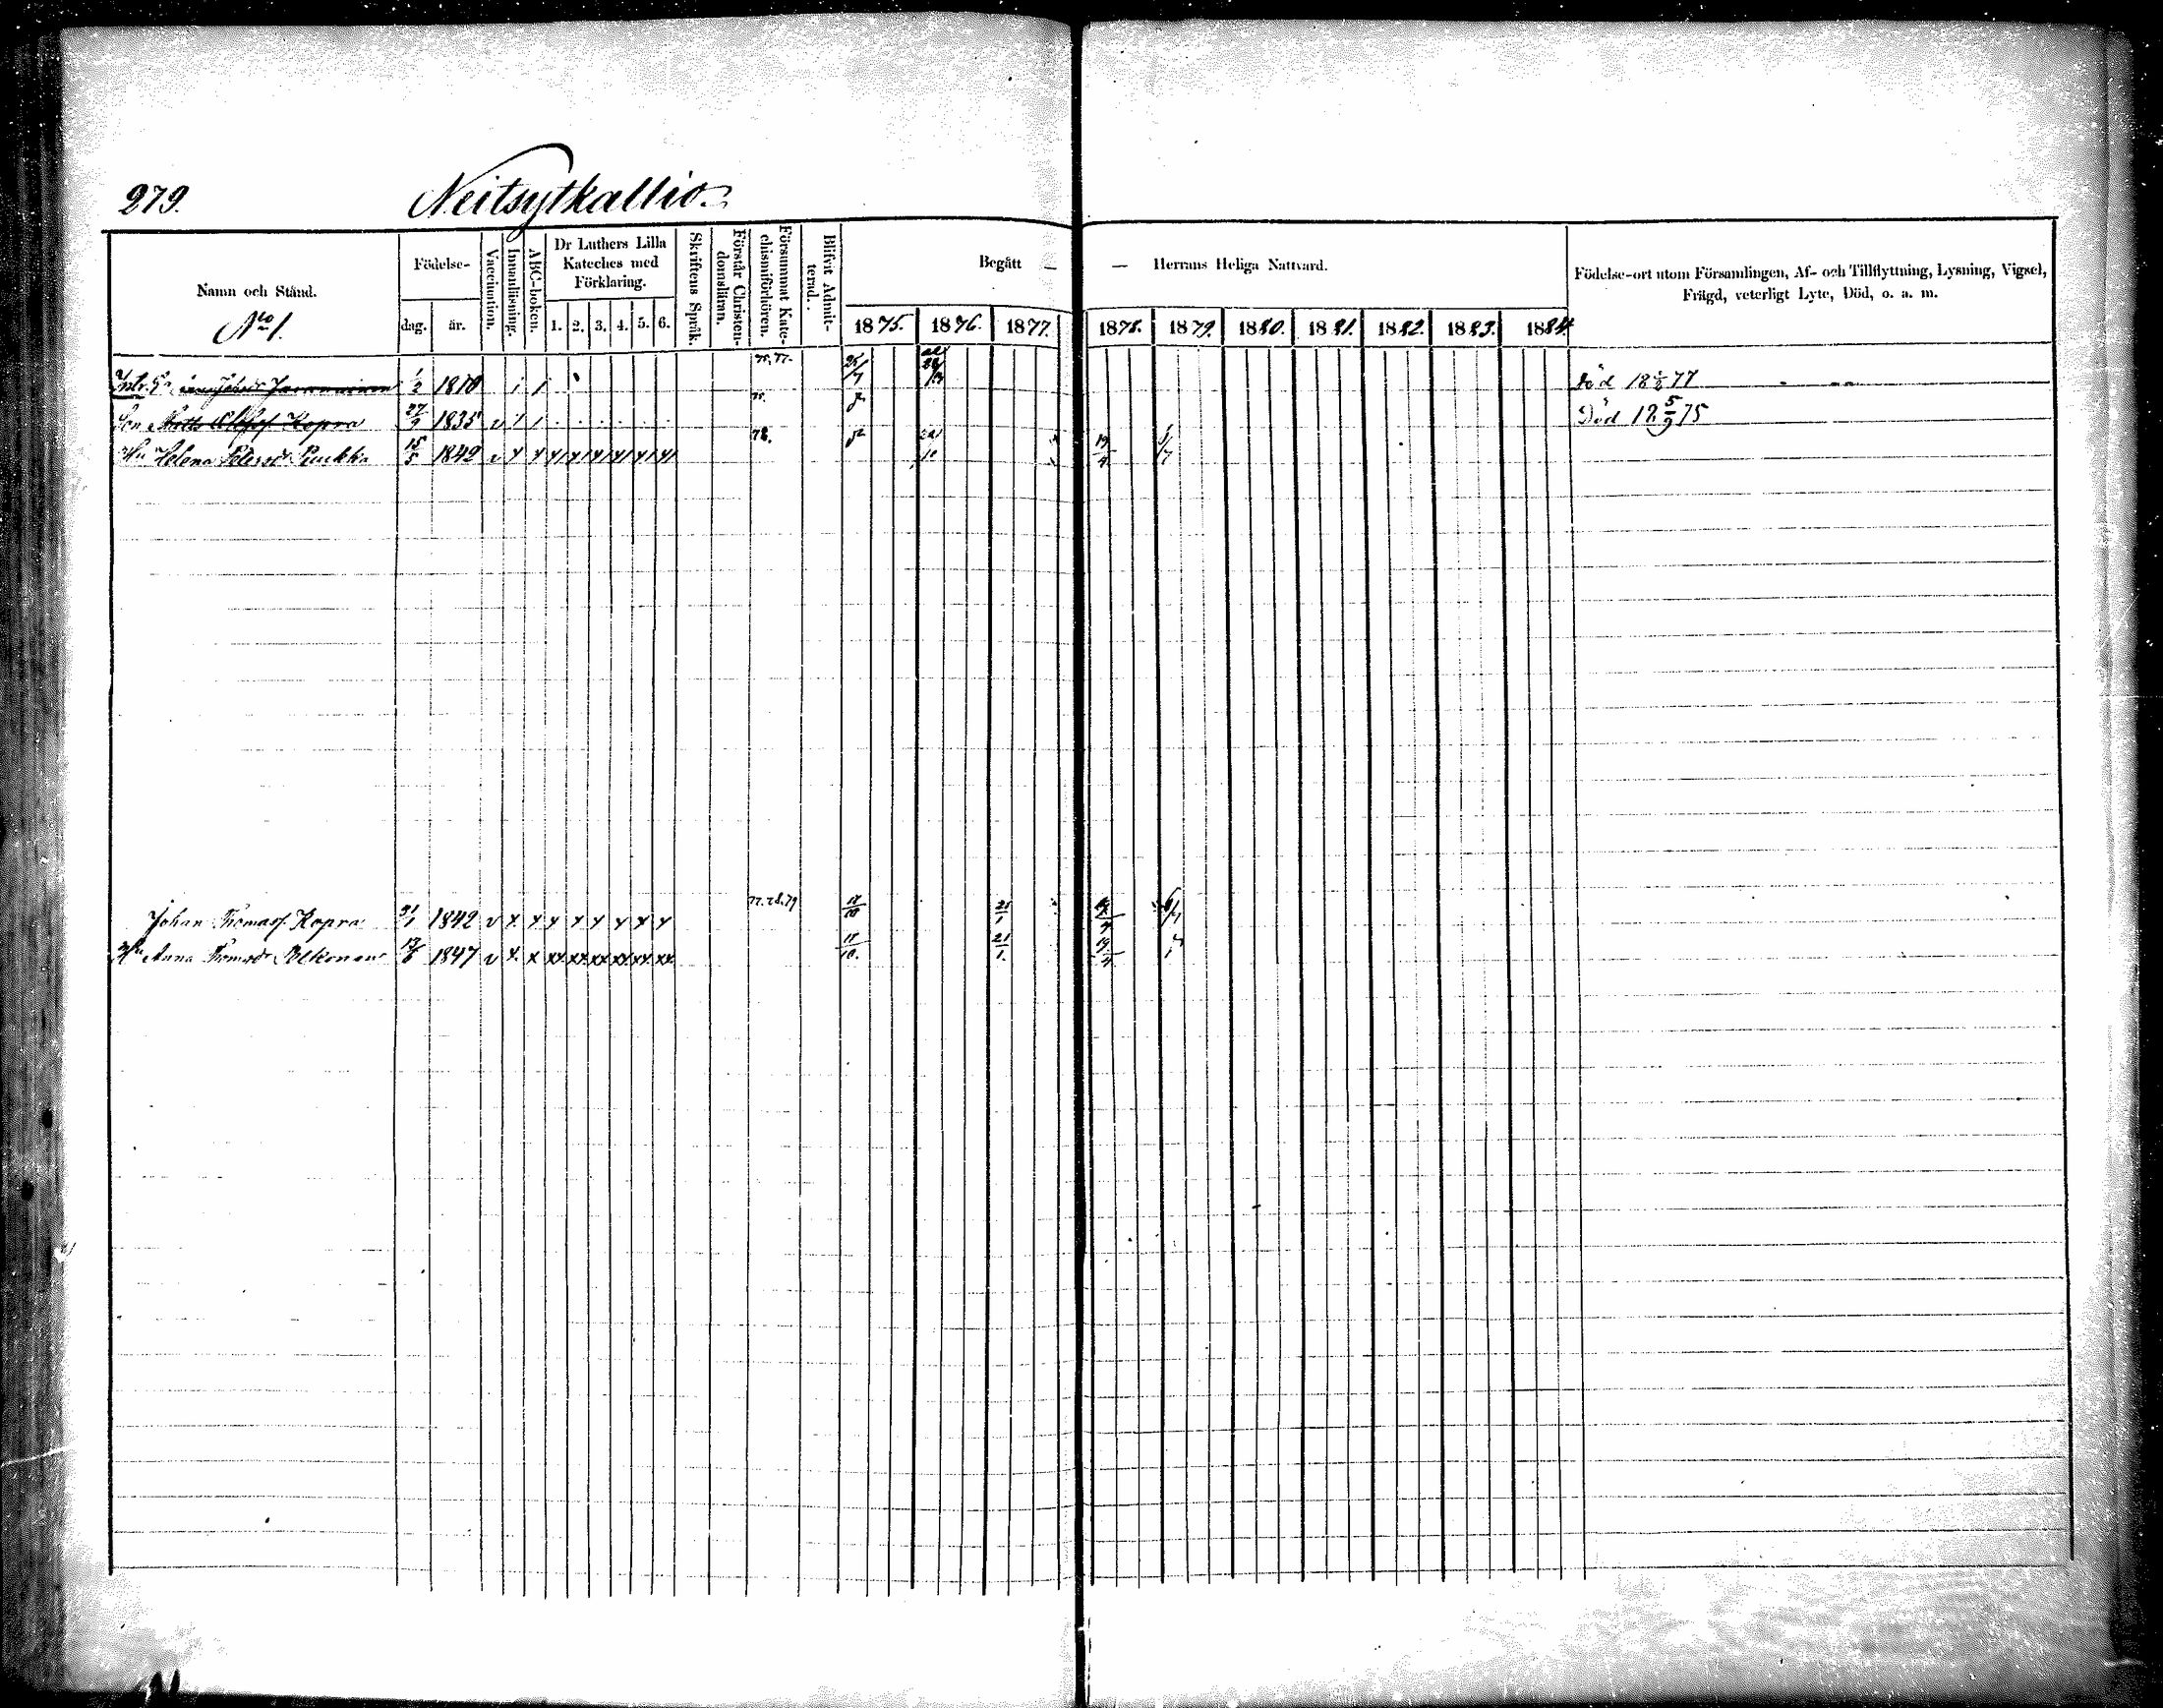 279. Neitsytkallio.
Namn och Stånd.
No 1.
Födelse-
dag. år.
Vaccination.
Innanläsning.
ABC-boken.
Dr Luthers Lilla
Kateches med
Förklaring.
1. 2. 3. 4. 5. 6.
Skriftens Språk.
Förstår Christen-
domsläran.
Försummat Kate-
chismiförhören.
Blifvit Admit-
terad.
Begått — — Herrans Heliga Nattvard.
1875. 1876. 1877. 1878. 1879. 1880. 1881. 1882. 1883. 1884.
Födelse-ort utom Församlingen, Af- och Tillflyttning, Lysning, Vigsel,
Frägd, veterligt Lyte, Död, o. a. m.
1/2 1810 75. 77. Död 18 77
Son Kopra 27/9 1835 v 75. Död 18 5/9 75
Hu Helena Petersdr Puukka 15/5 1842 v 78. 19/4
Johan Thomass. Kopra 21/1 1842 v x x x x x x x x 77. 78. 79 18/10 21/1 19/4 6/7
Hu Anna Thomsdr Polkonen 1847 v x x xx xx xx xx xx xx 18/10. 21/1. 19/4